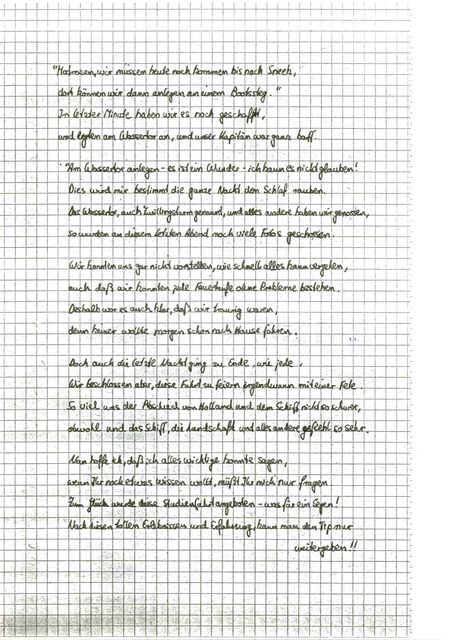 "Matrosen, wir müssen heute noch kommen bis nach Sneek,
dort können wir dann anlegen an einem Bootssteg."
In letzter Minute haben wir es noch geschafft,
und legten am Wassertor an, und unser Kapitän war ganz baff.
"Am Wassertor anlegen - es ist ein Wunder - ich kann es nicht glauben!
Dies wird mir bestimmt die ganze Nacht den Schlaf rauben.
Das Wassertor, auch Zwillingsturm genannt, und alles andere haben wir genossen,
so wurden an diesem letzten Abend noch viele Fotos geschossen.
Wir konnten uns gar nicht vorstellen, wie schnell alles kann vergehen,
auch daß wir konnten jede Feuertaufe ohne Probleme bestehen.
Deshalb war es auch klar, daß wir traurig waren,
denn keiner wollte morgen schon nach Hause fahren.
Doch auch die letzte Nacht ging zu Ende, wie jede.
Wir beschlossen aber, diese Fahrt zu feiern irgendwann mit einer Fete.
So viel uns der Abschied von Holland und dem Schiff nicht so schwer,
obwohl und das Schiff, die Landschaft und alles andere gefiehl so sehr.
Nun hoffe ich, daß ich alles wichtige konnte sagen,
wenn Ihr noch etwas wissen wollt, müßt Ihr mich nur fragen
Zum Glück wurde diese Studienfahrt angeboten - was für ein Segen!
Nach diesen tollen Erlebnissen und Erfahrung, kann man den Tip nur
weitergeben!!